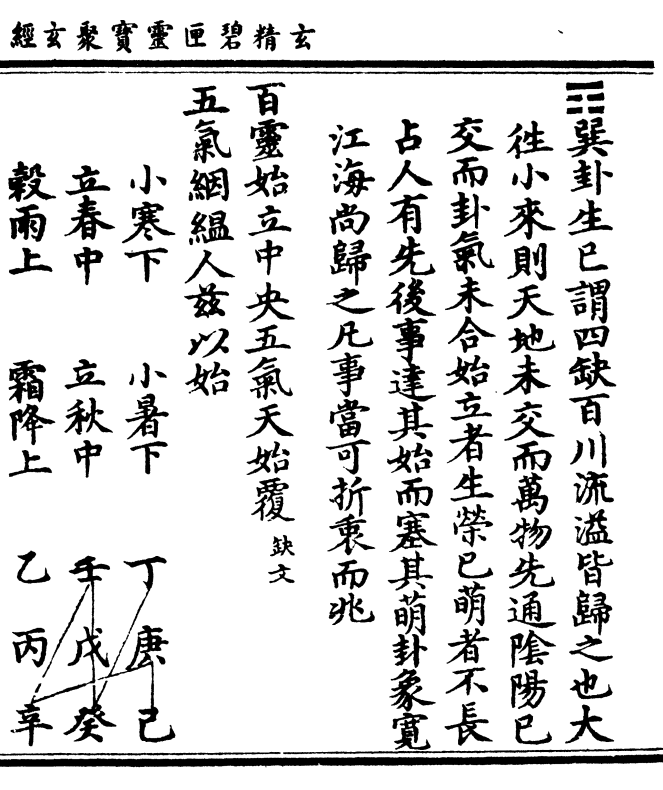 玄精碧匣靈寶聚玄經
☶巽卦生巳謂四缺百川流溢皆歸之也大
徃小來則天地未交而萬物先通陰陽巳
交而卦氣未合始立者生榮巳萌者不長
占人有先後事達其始而塞其萌卦象寛
江海尚歸之凡事當可折衷而兆
百靈始立中央五氣天始覆 缺文
五氣絪緼人兹以始
小寒下 小暑下 丁 庚 己
立春中 立秋中 壬 戊 癸
穀雨上 霜降上 乙 丙 辛